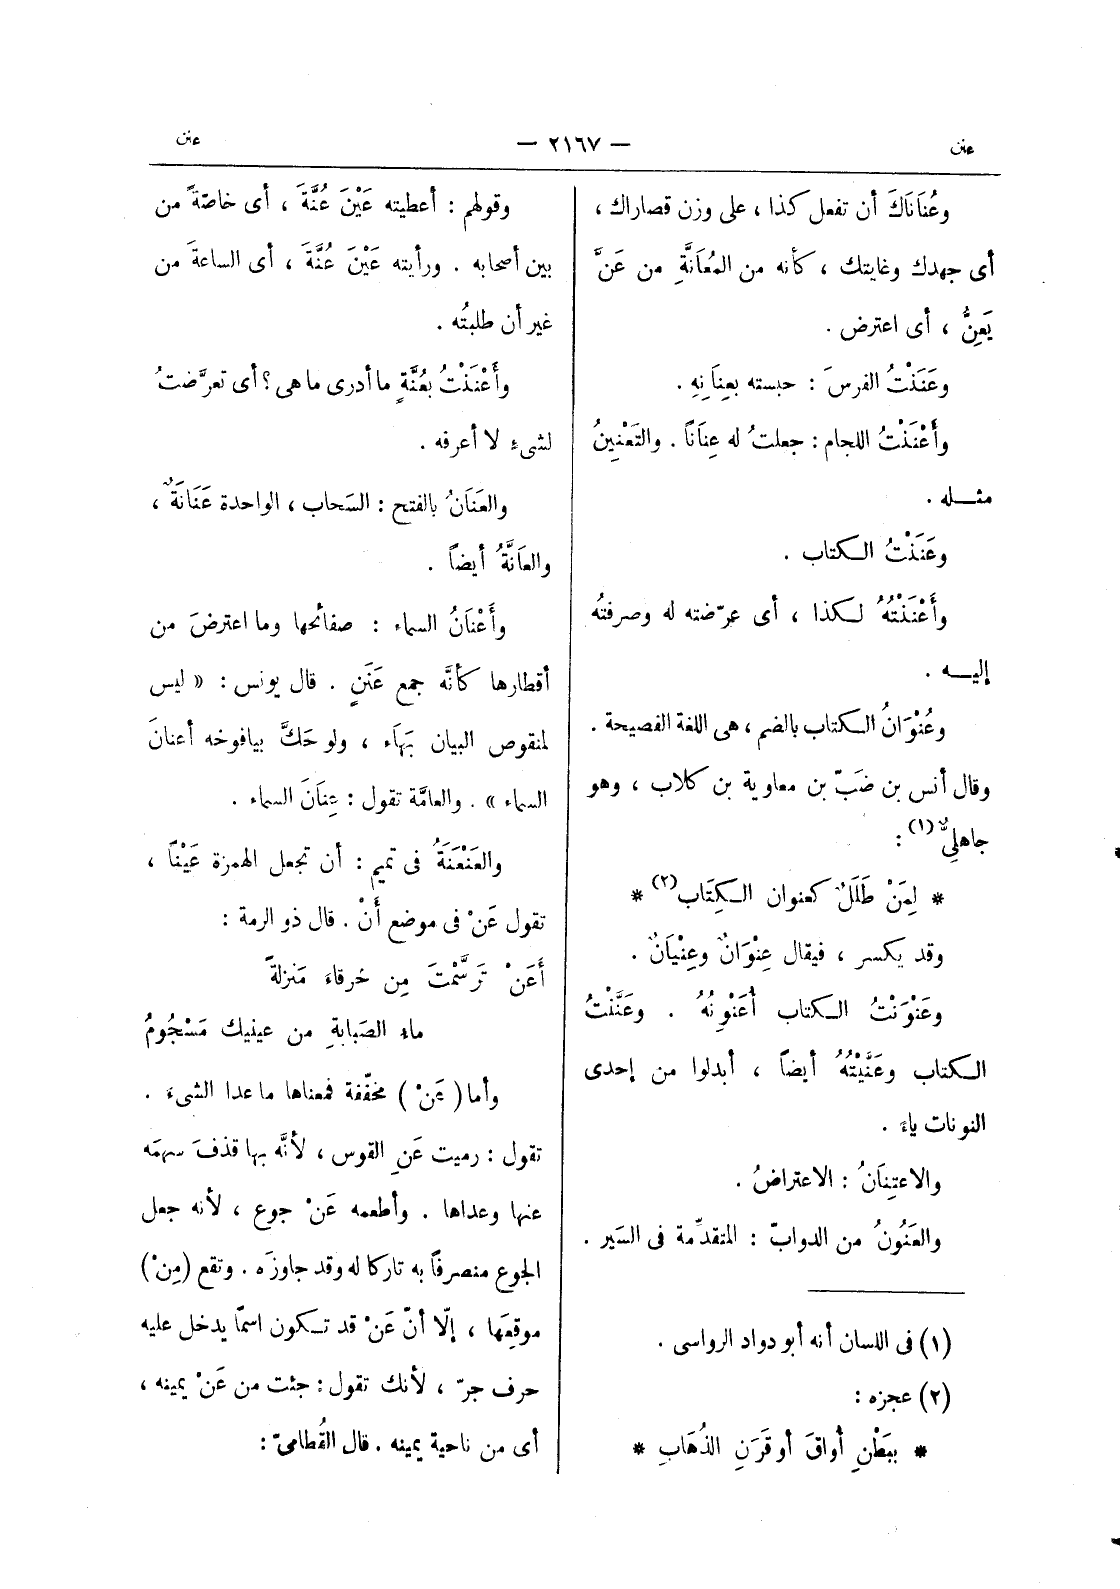 عنن — ٢١٦٧ — عنن
وعُنَانَاكَ أن تفعل كذا ، على وزن قصاراك ،
أى جهدك وغايتك ، كأنه من المُعَانَّةِ من عَنَّ
يَعِنُّ ، أى اعترض .
وعَنَنْتُ الفرسَ : حبسته بعِنَانِهِ .
وأَعْنَنْتُ اللجام : جعلتُ له عِنَاناً . والتَعْنِينُ
مثله .
وعَنَنْتُ الكتاب .
وأَعْنَنْتُهُ لكذا ، أى عرّضته له وصرفتُه
إليه .
وعُنْوَانُ الكتاب بالضم ، هى اللغة الفصيحة .
وقال أنس بن ضَبّ بن معاوية بن كلاب ، وهو
جاهلىٌّ (١) :
* لِمَنْ طَلَلٌ كعنوان الكِتَاب (٢) *
وقد يكسر ، فيقال عِنْوَانٌ وعِنْيَانٌ .
وعَنْوَنْتُ الكتاب أُعَنْوِنُهُ . وعَنَّنْتُ
الكتاب وعَنَّيْتُهُ أيضاً ، أبدلوا من إحدى
النونات ياءً .
والاعتِنَانُ : الاعتراضُ .
والعَنُونُ من الدوابّ : المتقدِّمة فى السَير .
(١) فى اللسان أنه أبو دواد الرواسى .
(٢) عجزه :
* ببَطْنِ أُواقَ أو قَرَنِ الذُهَابِ *
وقولهم : أعطيته عَيْنَ عُنَّةَ ، أى خاصّةً من
بين أصحابه . ورأيته عَيْنَ عُنَّةَ ، أى الساعةَ من
غير أن طلبتُه .
وأَعْنَنْتُ بعُنَّةٍ ما أدرى ما هى ؟ أى تعرَّضتُ
لشىءٍ لا أعرفه .
والعَنَانُ بالفتح : السَحاب ، الواحدة عَنَانَةٌ ،
والعَانَّةُ أيضاً .
وأَعْنَانُ السماء : صفائحها وما اعترضَ من
أقطارها كأنَّه جمع عَنَنٍ . قال يونس : « ليس
لمنقوص البيان بَهَاء ، ولو حَكَّ بيافوخه أعنانَ
السماء » . والعامَّة تقول : عِنَانَ السماء .
والعَنْعَنَةُ فى تميم : أن تجعل الهمزة عَيْناً ،
تقول عَنْ فى موضع أَنْ . قال ذو الرمة :
أَعَنْ تَرَسَّمْتَ مِن خرقاءَ مَنزلةً
ماءُ الصَبابةِ من عينيك مَسْجُومُ
وأما ( عَنْ ) مخفّفة فمعناها ما عدا الشىءَ .
تقول : رميت عَنِ القوس ، لأنَّه بها قذفَ سهمَه
عنها وعداها . وأطعمه عَنْ جوع ، لأنه جعل
الجوع منصرفاً به تاركا له وقد جاوزَه . وتقع (مِنْ)
موقعَها ، إلّا أنّ عَنْ قد تكون اسمًا يدخل عليه
حرف جرّ ، لأنك تقول : جئت من عَنْ يمينه ،
أى من ناحية يمينه . قال القُطامىّ :